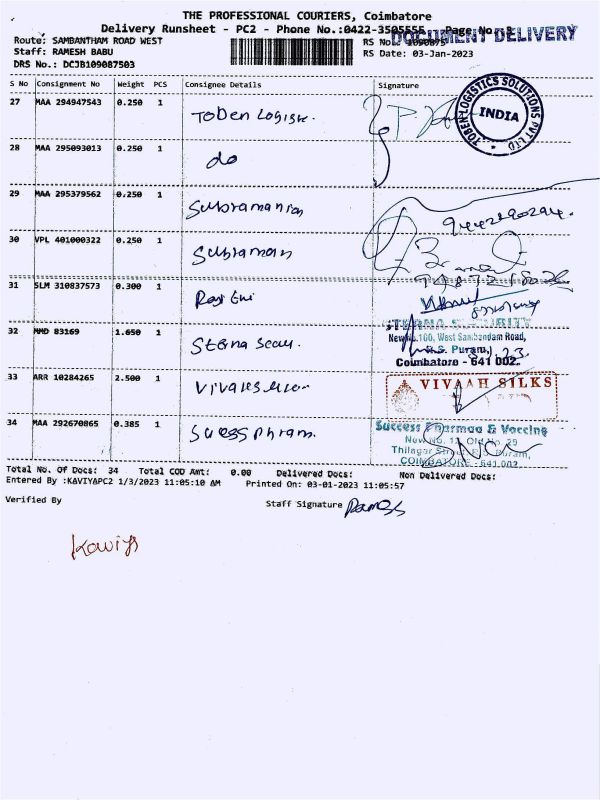 THE PROFESSIONAL COURIERS, Coimbatore
Delivery Runsheet - PC2 - Phone No.:0422-3505555 Page No. 3
DOCUMENT DELIVERY
Route: SAMBANTHAM ROAD WEST
RS No.: 1090875
Staff: RAMESH BABU
RS Date: 03-Jan-2023
DRS No.: DCJB109087503
S No Consignment No Weight PCS Consignee Details Signature
27 MAA 294947543 0.250 1 Toben Logistic.
TOBEN LOGISTICS SOLUTIONS PVT LTD
INDIA
28 MAA 295093013 0.250 1 do
29 MAA 295379562 0.250 1 Subramanian
30 VPL 401000322 0.250 1 Subraman
31 SLM 310837573 0.300 1
32 MMD 83169 1.650 1
New No.100, West Sambandam Road,
R.S. Puram,
Coimbatore - 641 002.
33 ARR 10284265 2.500 1
VIVAAH SILKS
34 MAA 292670865 0.385 1
Success Pharmaa & Vaccine
New No. 12, Old No. 29
Thilagar Street, R.S. Puram,
COIMBATORE - 641 002.
Total No. Of Docs: 34 Total COD Amt: 0.00 Delivered Docs: Non Delivered Docs:
Entered By :KAVIYAPC2 1/3/2023 11:05:10 AM Printed On: 03-01-2023 11:05:57
Verified By Staff Signature Ramess
Kaviya